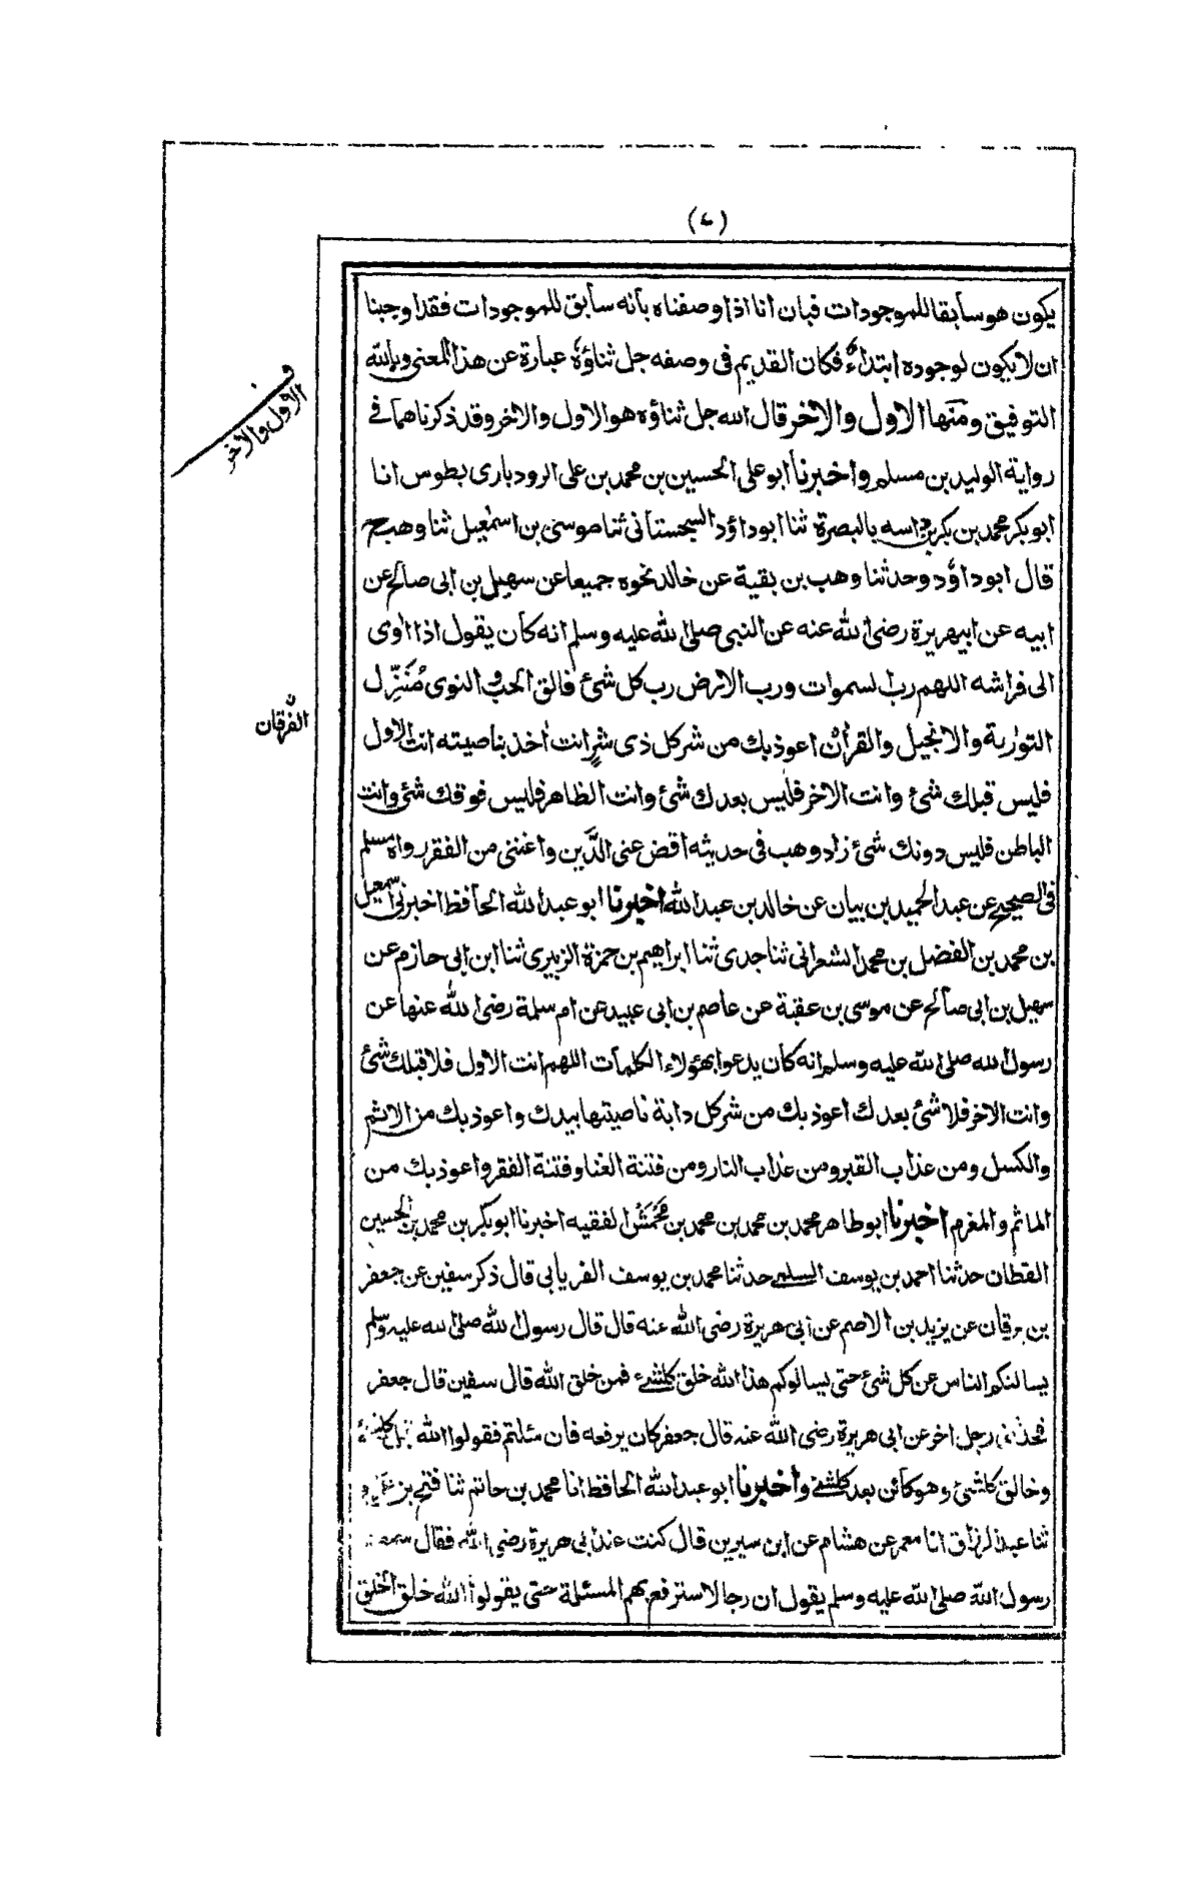 (٧)
يكون هو سابقا للموجودات فبان انا اذا وصفناه بأنه سابق للموجودات فقد اوجبنا
ان لا يكون لوجوده ابتداءٌ فكان القديم فى وصفه جل ثناؤه عبارة عن هذا المعنى وبالله
التوفيق ومنها الاول والاٰخر قال الله جل ثناؤه هو الاول والاٰخر وقد ذكرناهما فى
رواية الوليد بن مسلم واخبرنا ابو على الحسين بن محمد بن على الرودبارى بطوس انا
ابو بكر محمد بن بكر بن داسه بالبصرة ثنا ابو داؤد السجستانى ثنا موسى بن اسمٰعيل ثنا وهب ح
قال ابو داؤد وحدثنا وهب بن بقية عن خالد نحوه جميعا عن سهيل بن ابى صالح عن
ابيه عن ابيهريرة رضى الله عنه عن النبى صلى الله عليه وسلم انه كان يقول اذا اوى
الى فراشه اللهم رب السموات ورب الارض رب كل شئ فالق الحب و النوى مُنَزِّل
التورٰىة والانجيل والقراٰن اعوذ بك من شر كل ذى شرٍ انت اٰخذ بناصيته انت الاول
فليس قبلك شئ وانت الاٰخر فليس بعدك شئ وانت الظاهر فليس فوقك شئ وانت
الباطن فليس دونك شئ زاد وهب فى حديثه اقض عنى الدَّين واغننى من الفقر رواه مسلم
فى الصحيح عن عبد الحميد بن بيان عن خالد بن عبد الله اخبرنا ابو عبد الله الحافظ اخبرنى اسمٰعيل
بن محمد بن الفضل بن محمد الشعرانى ثنا جدى ثنا ابراهيم بن حمزة الزبيرى ثنا ابن ابى حازم عن
سهيل بن ابى صالح عن موسى بن عقبة عن عاصم بن ابى عبيد عن ام سلمة رضى الله عنها عن
رسول الله صلى الله عليه وسلم انه كان يدعو ابهؤلاء الكلمات اللهم انت الاول فلا قبلك شئ
وانت الاٰخر فلا شئ بعدك اعوذ بك من شر كل دابة ناصيتها بيدك واعوذ بك من الاثم
والكسل ومن عذاب القبر ومن عذاب النار ومن فتنة الغنا وفتنة الفقر واعوذ بك من
الماثم والمغرم اخبرنا ابو طاهر محمد بن محمد بن محمد بن مَحْمَش الفقيه اخبرنا ابو بكر بن محمد بن الحسين
القطان حدثنا احمد بن يوسف السلمى حدثنا محمد بن يوسف الفريابى قال ذكر سفين عن جعفر
بن برقان عن يزيد بن الاصم عن ابى هريرة رضى الله عنه قال قال رسول الله صلى الله عليه وسلم
يسالنكم الناس عن كل شئ حتى يسالوكم هذا الله خلق كلشئ فمن خلق الله قال سفين قال جعفر
فحدثنى رجل اٰخر عن ابى هريرة رضى الله عنه قال جعفر كان يرفعه فان سئلتم فقولوا الله قبل كلشئ
وخالق كلشئ وهو كائن بعد كلشئ واخبرنا ابو عبد الله الحافظ انا محمد بن حاتم ثنا فتح بن
ثنا عبد الرزاق انا معمر عن هشام عن ابن سيرين قال كنت عند ابى هريرة رضى الله فقال سمعت
رسول الله صلى الله عليه وسلم يقول ان رجالا سترفع بهم المسئلة حتى يقولوا الله خلق الخلق
ف
الاول والاٰخر
ن
الفرقان